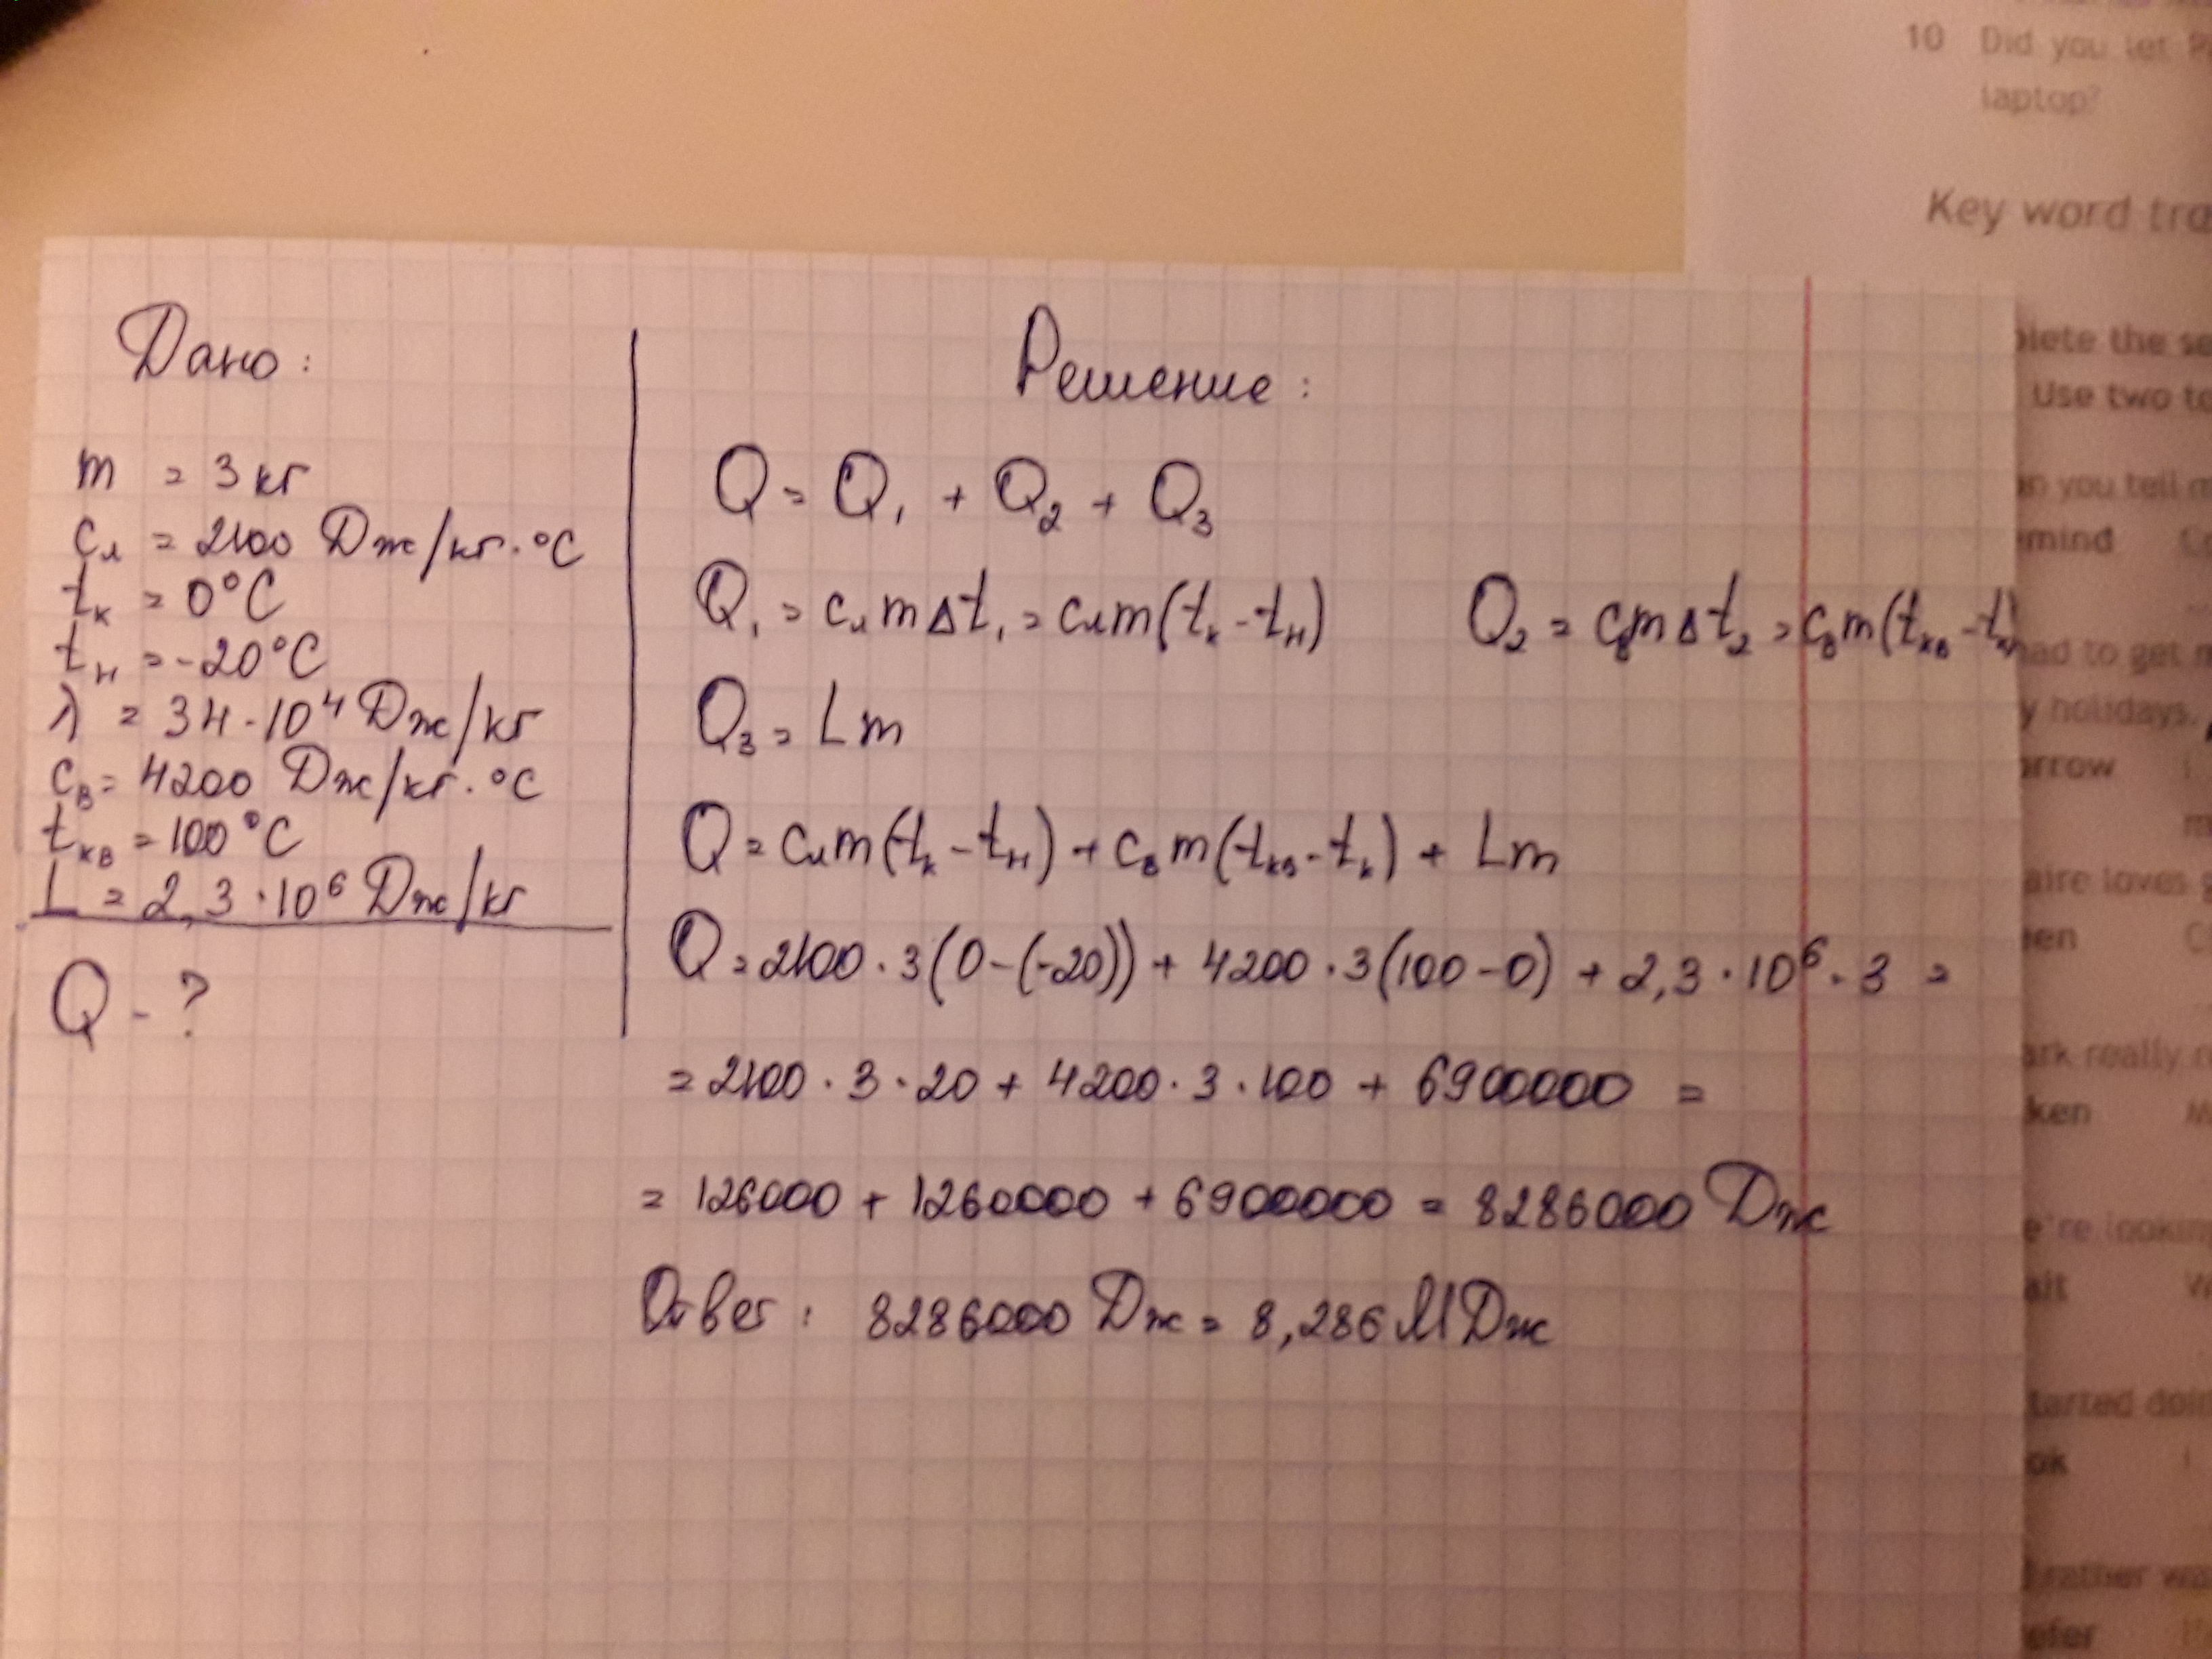 10 Did you let
laptop?
Key word tra
plete the se
Use two to
you tell m
mind
had to get m
y holidays,
orrow
aire loves s
een
ark really
ken
e're looking
ait
tarted doin
ok
rather wa
efer
Дано:
m = 3 кг
cл = 2100 Дж/кг·°C
tк = 0°C
tн = -20°C
λ = 34·10⁴ Дж/кг
cв = 4200 Дж/кг·°C
tкв = 100°C
L = 2,3·10⁶ Дж/кг
Q - ?
Решение:
Q = Q₁ + Q₂ + Q₃
Q₁ = cл m Δt₁ = cл m(tк - tн) Q₂ = cв m Δt₂ = cв m(tкв - tк)
Q₃ = Lm
Q = cл m(tк - tн) + cв m(tкв - tк) + Lm
Q = 2100·3(0-(-20)) + 4200·3(100-0) + 2,3·10⁶·3 =
= 2100·3·20 + 4200·3·100 + 6900000 =
= 126000 + 1260000 + 6900000 = 8286000 Дж
Ответ: 8286000 Дж = 8,286 МДж